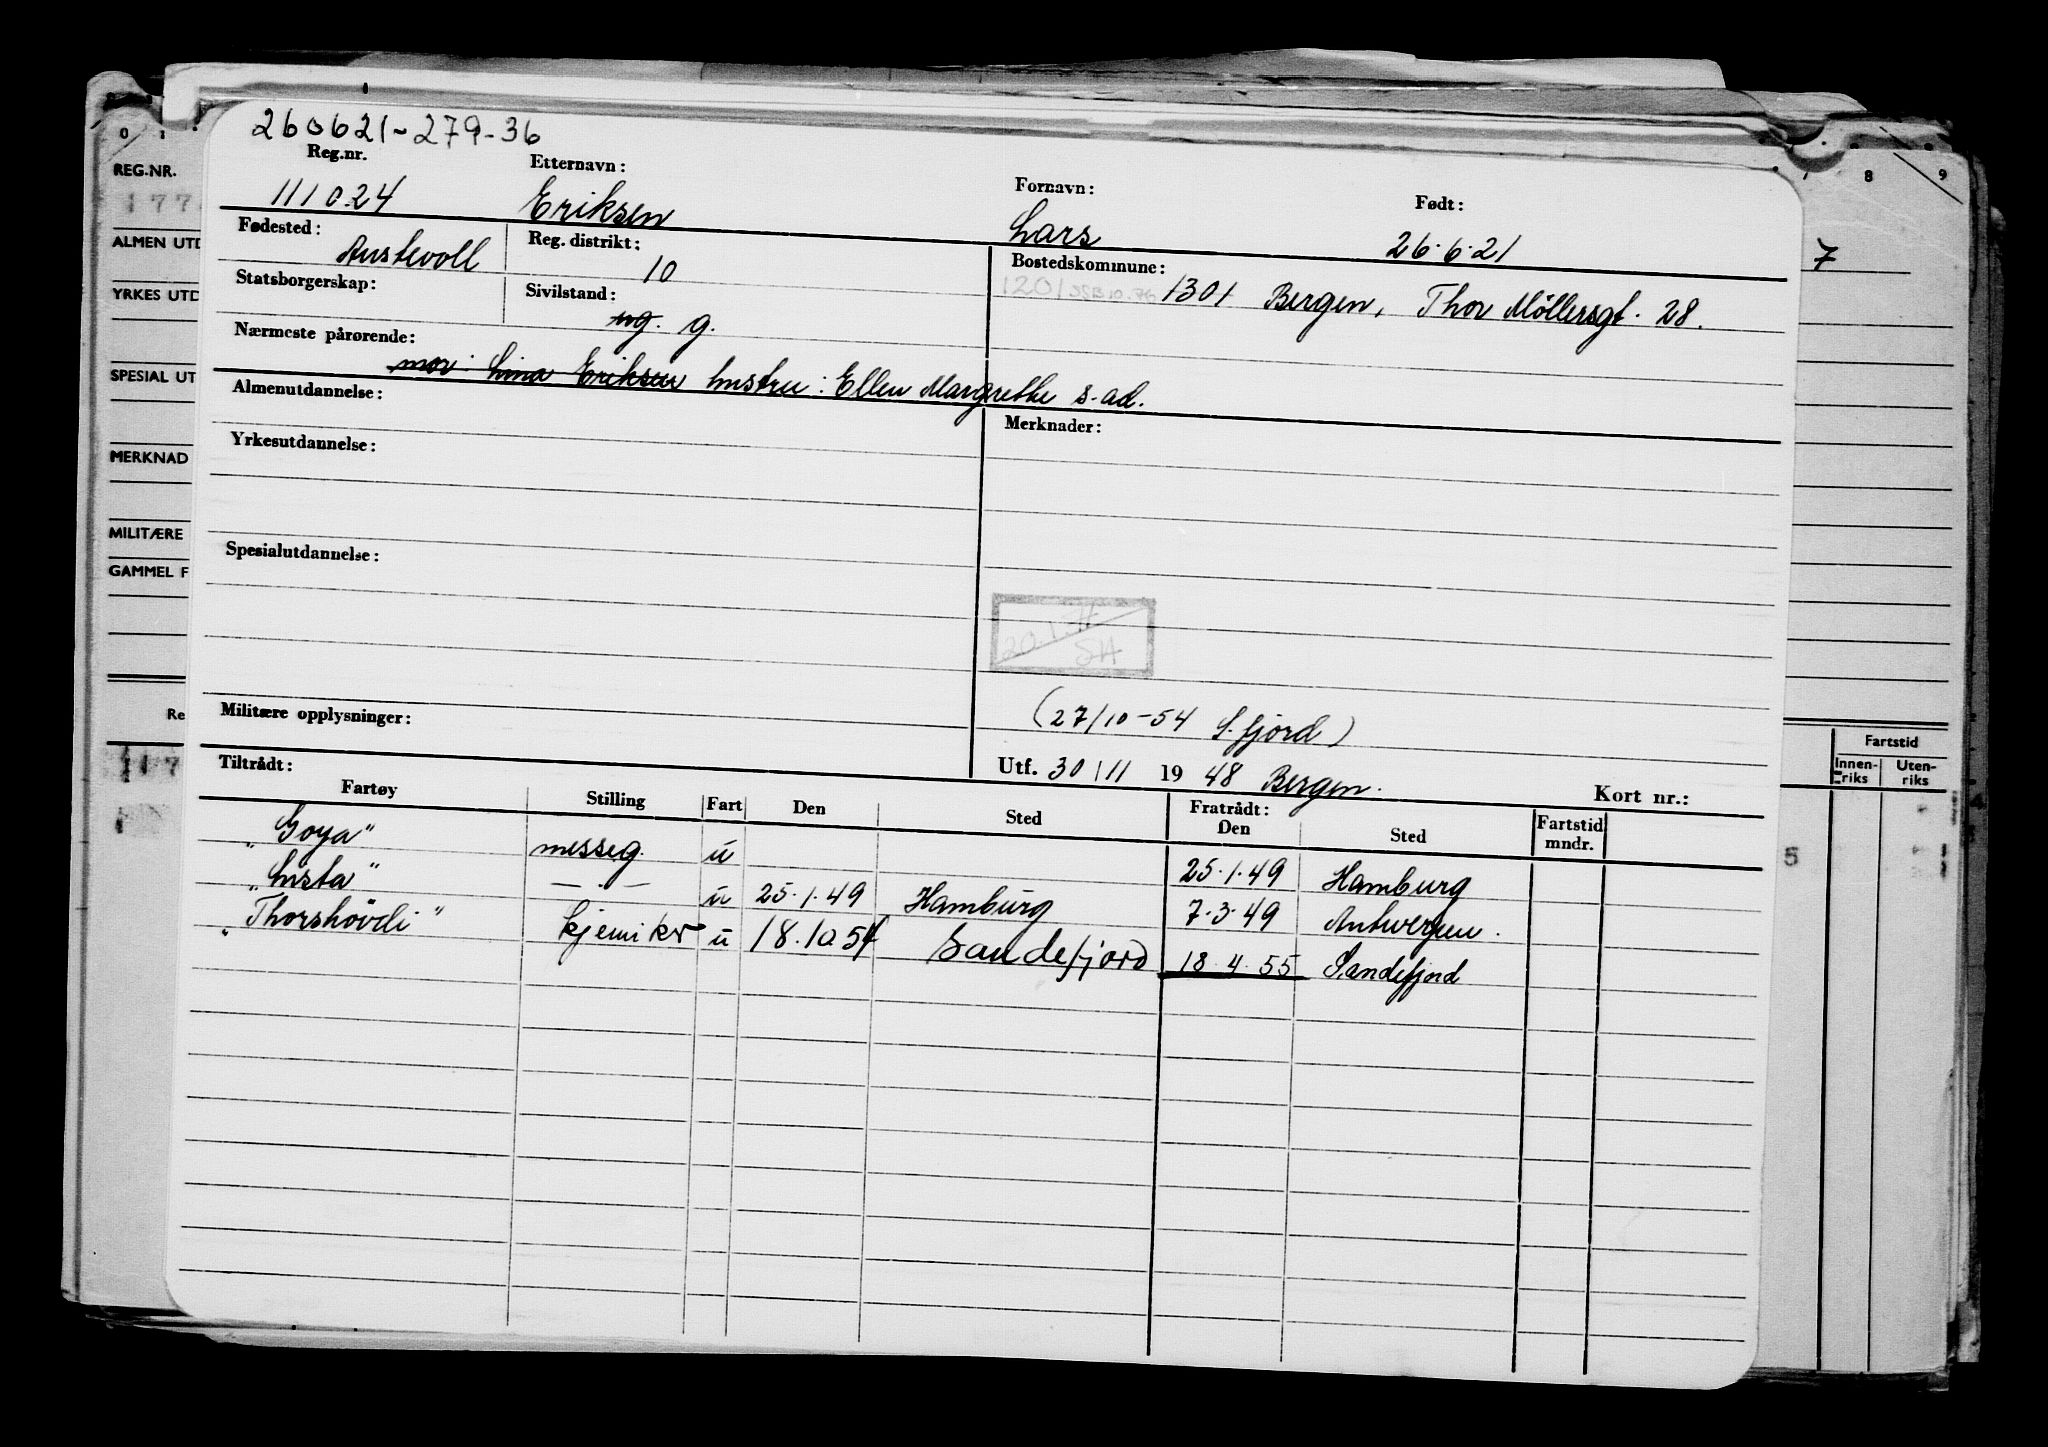 260621-279-36
Reg.nr. Etternavn: Fornavn: Født:
111024 Eriksen Lars 26.6.21
Fødested: Austevoll Reg. distrikt: 10 Bostedskommune: 1201 1301 Bergen, Thor Möllersgt. 28.
Statsborgerskap: Sivilstand: ug. g.
Nærmeste pårørende: mor: Lina Eriksen hustru: Ellen Margrethe s. ad.
Almenutdannelse: Merknader:
Yrkesutdannelse:
Spesialutdannelse:
20.1.
SH
Militære opplysninger: (27/10-54 S.fjord)
Tiltrådt: Utf. 30/11 19 48 Bergen. Kort nr.:
Fartøy Stilling Fart Den Sted Fratrådt: Den Sted Fartstid mndr.
"Goya" messeg. u 25.1.49 Hamburg
"Lista" — . — u 25.1.49 Hamburg 7.3.49 Antwerpen.
"Thorshövdi" kjemiker u 18.10 54 Sandefjord 18.4.55 Sandefjord
0 1
REG.NR.
177
ALMEN UTD
YRKES UTD
SPESIAL UT
MERKNAD
MILITÆRE
GAMMEL F
Re
117
8 9
7
Fartstid
Innen-riks Uten-riks
5